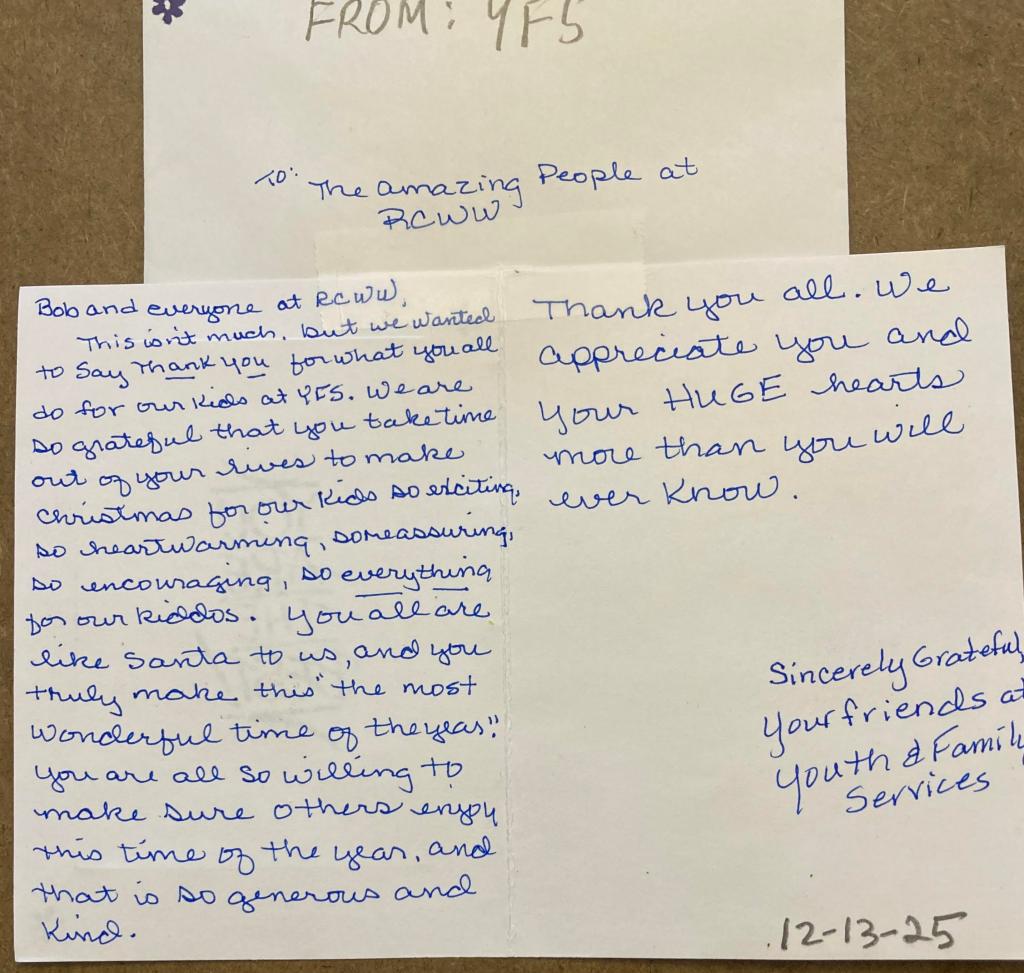 FROM: YFS
TO: The amazing People at
RCWW
Bob and everyone at RCWW,
This isn't much, but we wanted
to say Thank you for what you all
do for our kids at YFS. We are
so grateful that you take time
out of your lives to make
Christmas for our kids so exciting,
so heartwarming, so reassuring,
so encouraging, so everything
for our kiddos. You all are
like Santa to us, and you
truly make this "the most
wonderful time of the year!"
You are all so willing to
make sure others enjoy
this time of the year, and
that is so generous and
kind.
Thank you all. We
appreciate you and
your HUGE hearts
more than you will
ever know.
Sincerely Grateful,
Your friends at
Youth & Family
Services
12-13-25